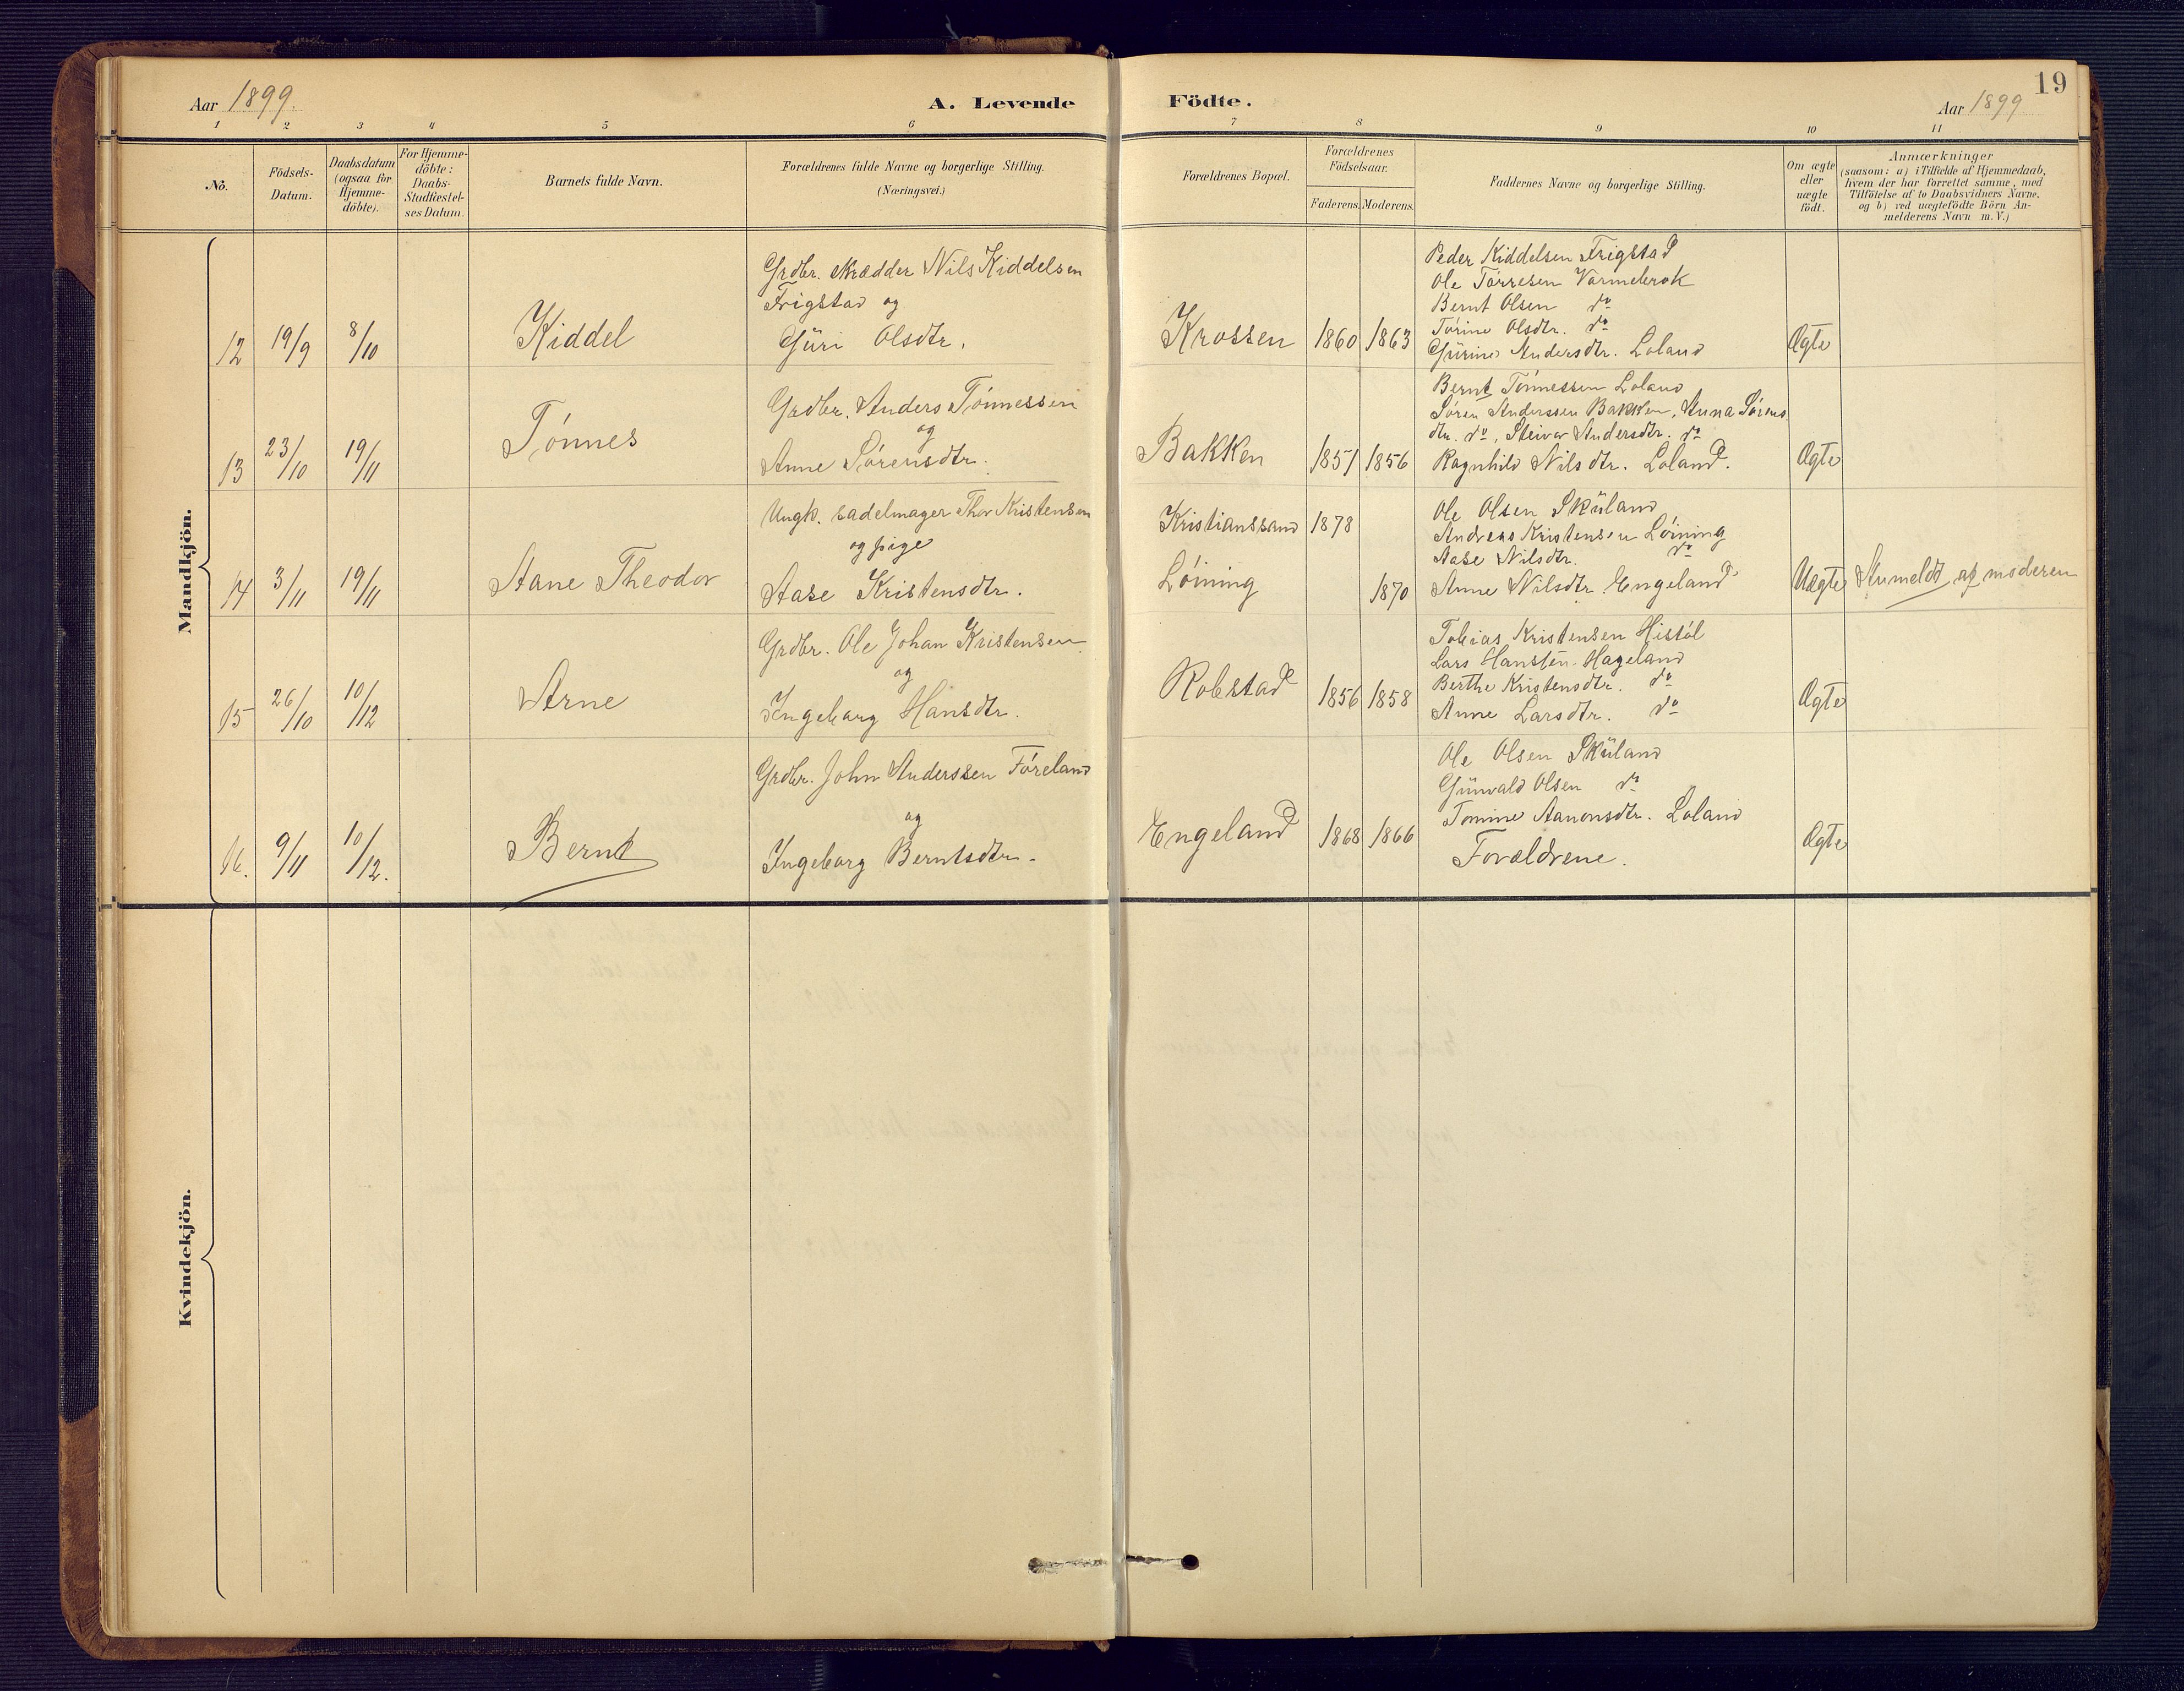 Aar 1899.
A. Levende
Födte.
19
Aar 1899
1 2 3 4 5 6 7 8 9 10 11
No.
Födsels-
Datum.
Daabsdatum
(ogsaa for
Hjemme-
döbte).
For Hjemme-
döbte:
Daabs-
Stadfæstel-
ses Datum.
Barnets fulde Navn.
Forældrenes fulde Navne og borgerlige Stilling.
(Næringsvei.)
Forældrenes Bopæl.
Forældrenes
Födselsaar.
Faderens. Moderens.
Faddernes Navne og borgerlige Stilling.
Om ægte
eller
uægte
födt.
Anmærkninger
(saasom: a) i Tilfælde af Hjemmedaab,
hvem der har forrettet samme, med
Tilföielse af to Daabsvidners Navne.
og b) ved uægtefödte Börn An-
melderens Navn m. V.)
Mandkjön.
12 19/9 8/10
Kiddel
Grdbr. skrædder Nils Kiddelsen
Frigstad og
Güri Olsdtr.
Krossen 1860 1863
Peder Kiddelsen Frigstad
Ole Tørresen Varmebrok
Bernt Olsen do
Torine Olsdtr. do
Gürine Andersdtr. Loland
Ægte
13 23/10 19/11
Tønnes
Grdbr. Anders Tønnessen
og
Anne Sørensdtr.
Bakken 1851 1856
Bernt Tønnessen Loland
Søren Anderssen Bakken, Anna Sørens
dtr. do, Steivor Andersdtr. do
Ragnhild Nilsdtr. Loland.
Ægte
14 3/11 19/11
Aane Theodor
Ungk. sadelmager Thor Kristensen
og pige
Aase Kristensdtr.
Kristianssand 1878
Løining 1870
Ole Olsen Sküland
Andreas Kristensen Løining
Aase Nilsdtr. do
Anne Nilsdtr. Engeland
Uægte
Anmeldt af moderen
15 26/10 10/12
Arne
Grdbr. Ole Johan Kristensen
og
Ingeborg Hansdtr.
Robstad 1856 1858
Tobias Kristensen Histøl
Lars Hanssen Hageland
Berthe Kristensdtr. do
Anne Larsdtr. do
Ægte
16. 9/11 10/12.
Bernt
Grdbr. John Anderssen Føreland
og
Ingeborg Berntsdtr.
Engeland 1868 1866
Ole Olsen Sküland
Günvald Olsen do
Tomine Aanonsdtr. Loland
Forældrene.
Ægte
Kvindekjön.